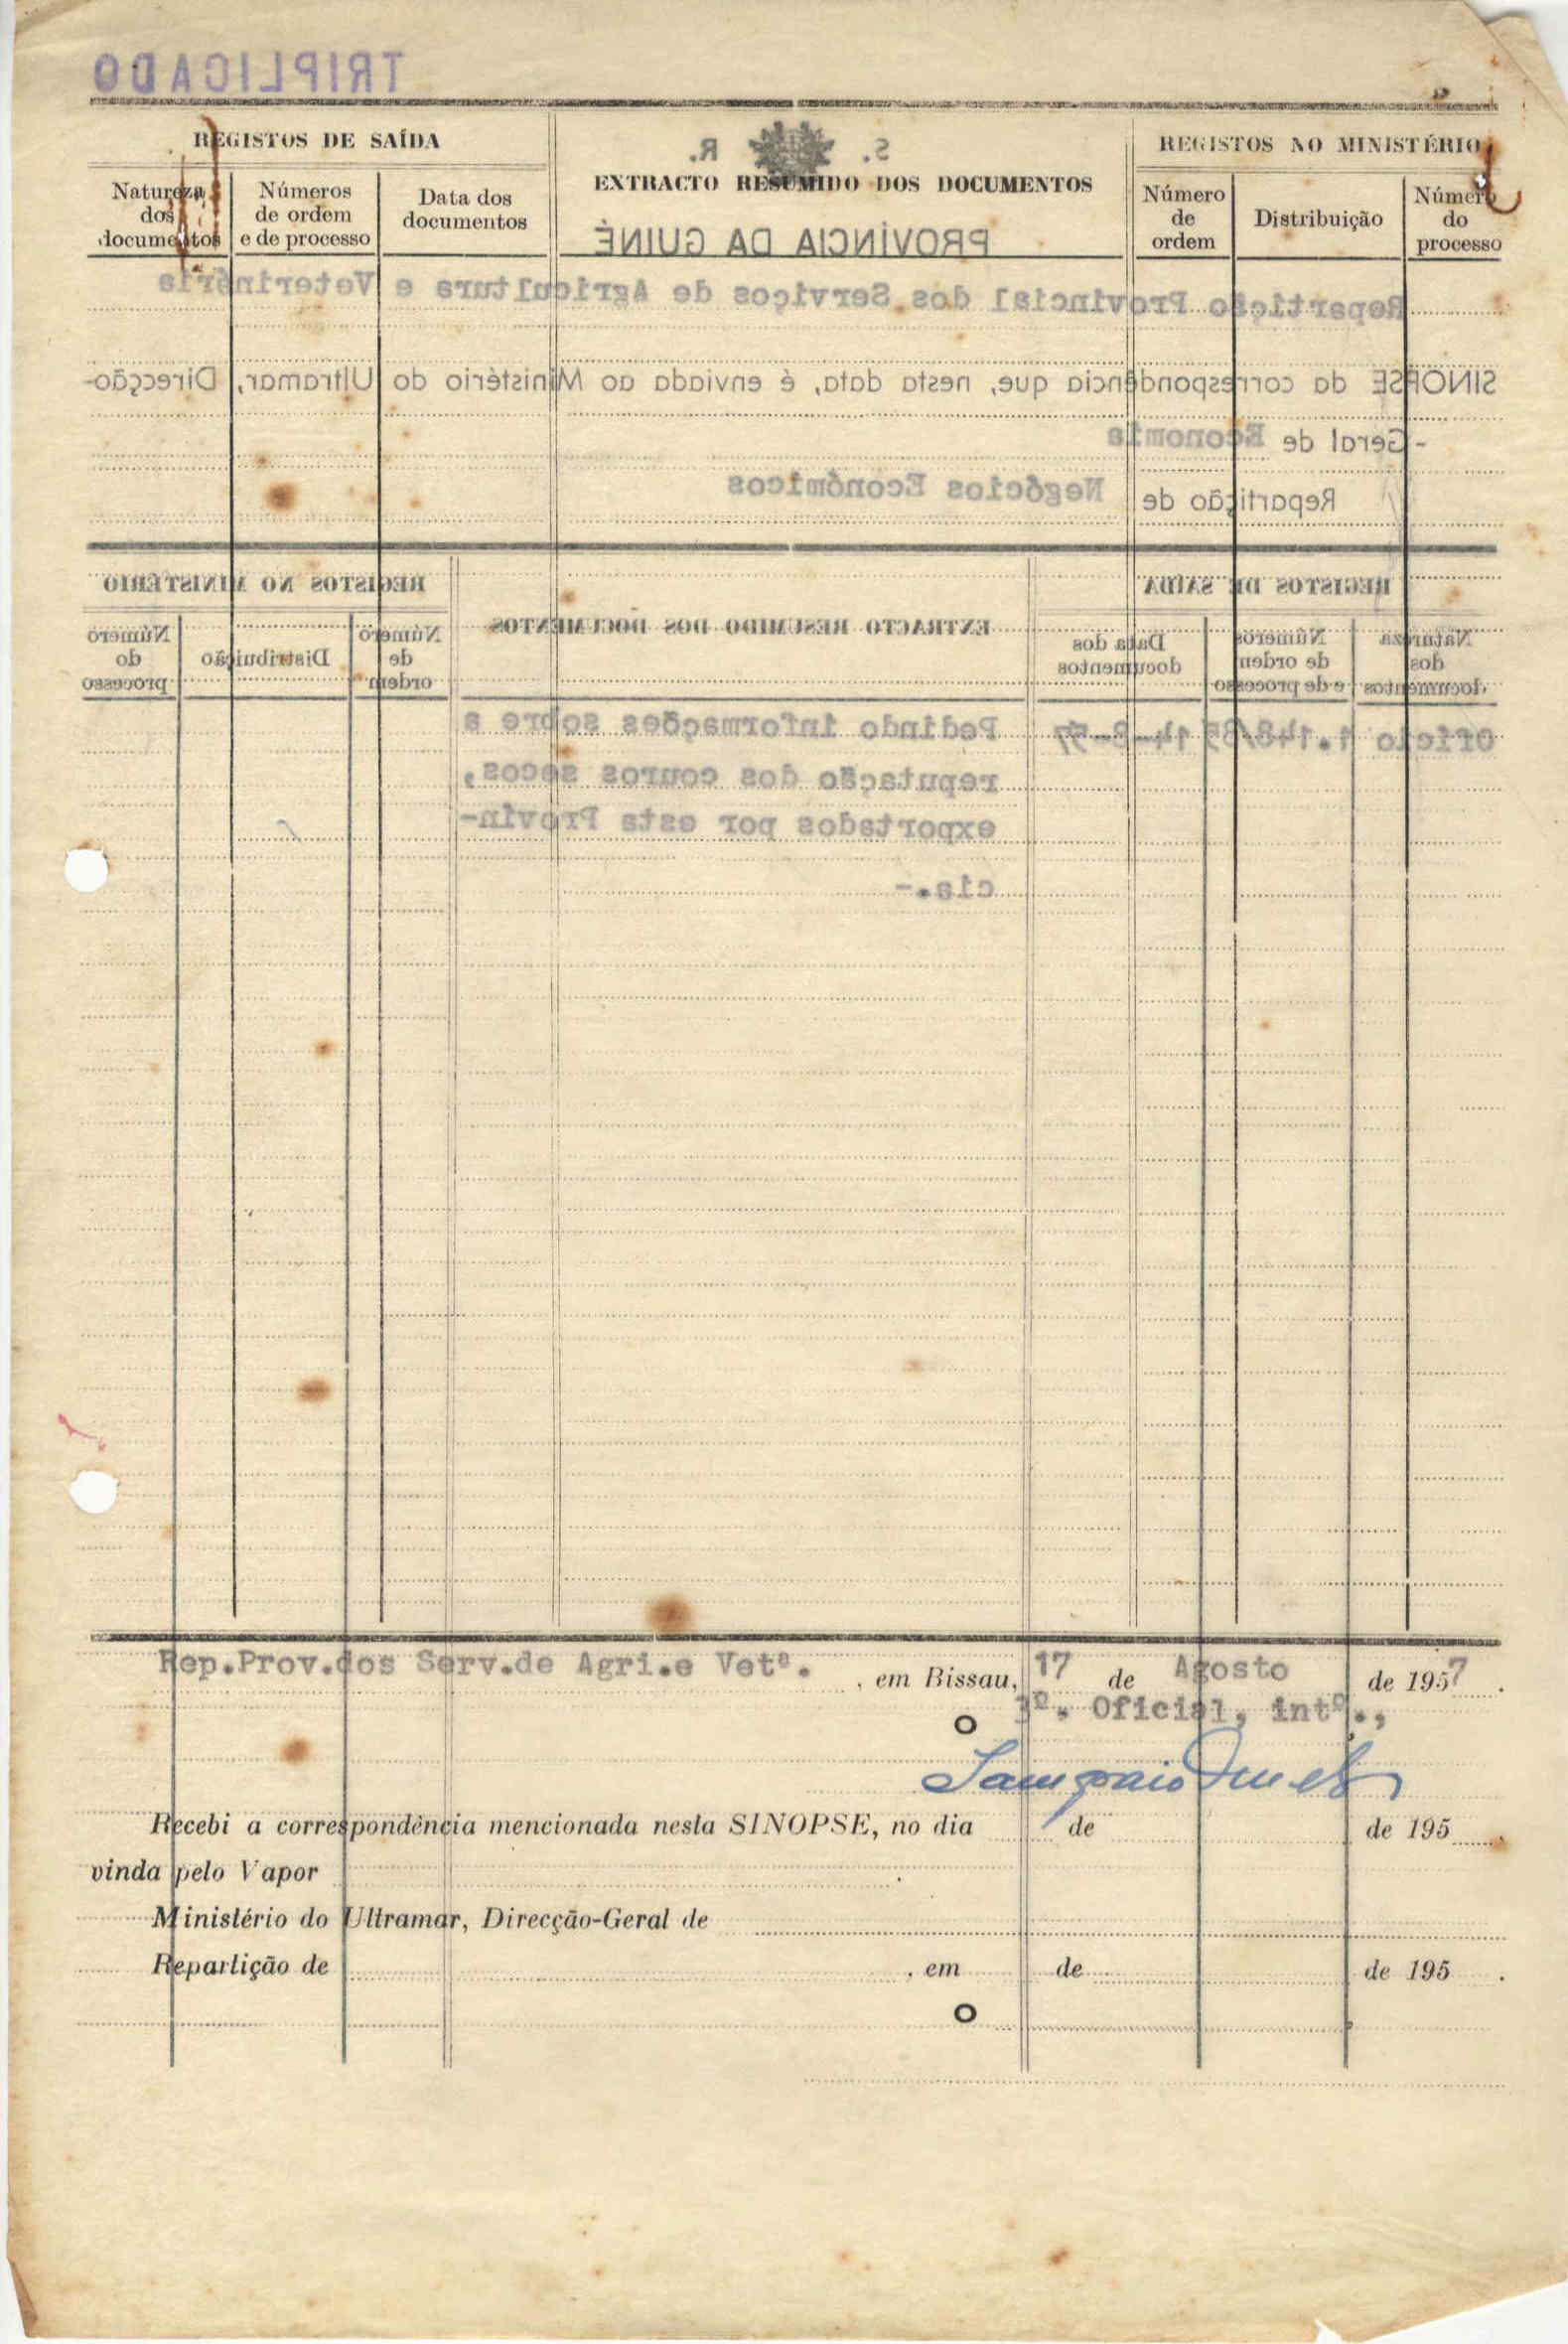 TRIPLICADO
REGISTOS DE SAÍDA
EXTRACTO RESUMIDO DOS DOCUMENTOS
REGISTOS NO MINISTÉRIO
Natureza
dos
documentos
Números
de ordem
e de processo
Data dos
documentos
Número
de
ordem
Distribuição
Número
do
processo
S. R.
PROVÍNCIA DA GUINÉ
Repartição Provincial dos Serviços de Agricultura e Veterinária
SINOPSE da correspondência que, nesta data, é enviada ao Ministério do Ultramar, Direcção-
-Geral de Economia
Repartição de Negócios Económicos
REGISTOS DE SAÍDA
EXTRACTO RESUMIDO DOS DOCUMENTOS
REGISTOS NO MINISTÉRIO
Natureza
dos
documentos
Números
de ordem
e de processo
Data dos
documentos
Número
de
ordem
Distribuição
Número
do
processo
Ofício 14-8-57 Pedindo informações sobre a
reputação dos couros secos,
exportados por esta Provín-
cia.-
Rep.Prov.dos Serv.de Agri.e Vetª. , em Bissau, 17 de Agosto de 1957.
O 3º. Oficial, intº.,
Recebi a correspondência mencionada nesta SINOPSE, no dia de de 195
vinda pelo Vapor .
Ministério do Ultramar, Direcção-Geral de
Repartição de , em de de 195 .
O